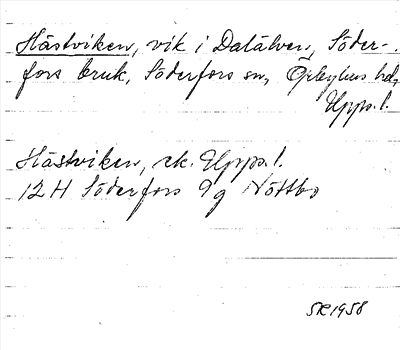 Hästviken, vik i Dalälven, Söder-
fors bruk, Söderfors sn, Örbyhus hd,
Upps. l.
Hästviken, ek. Upps. l.
12 H Söderfors 9g Nöttbo
SR 1958